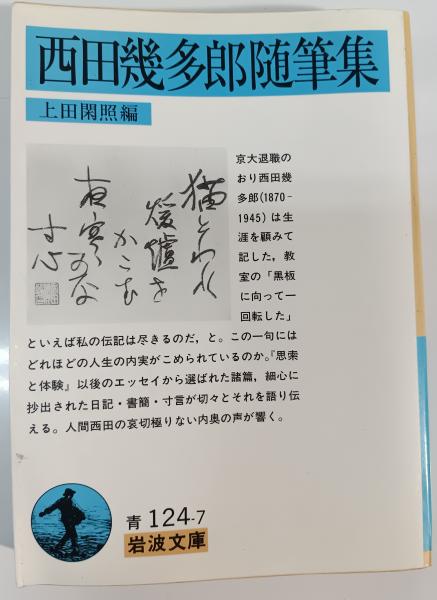 西田幾多郎随筆集
上田閑照編
猫とわれ
煖爐を
かこむ
夜寒かな
寸心
京大退職の
おり西田幾
多郎(1870-
1945)は生
涯を顧みて
記した，教
室の「黒板
に向って一
回転した」
といえば私の伝記は尽きるのだ，と。この一句には
どれほどの人生の内実がこめられているのか。『思索
と体験』以後のエッセイから選ばれた諸篇，細心に
抄出された日記・書簡・寸言が切々とそれを語り伝
える。人間西田の哀切極りない内奥の声が響く。
青 124-7
岩波文庫